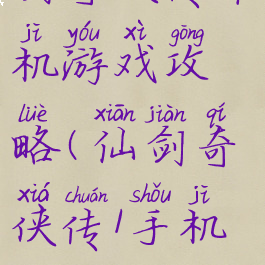 jī yóu xì gōng
机游戏攻
lüè xiān jiàn qí
略(仙剑奇
xiá chuán shǒu jī
侠传/手机